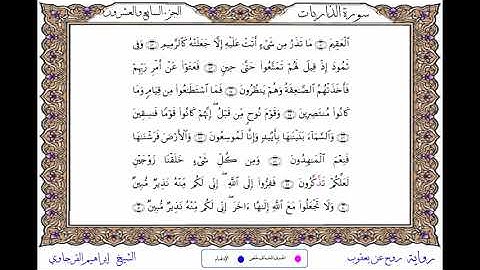 سورة الذاريات
الجزء السابع والعشرون
ٱلْعَقِيمَ ۝ مَا تَذَرُ مِن شَىْءٍ أَتَتْ عَلَيْهِ إِلَّا جَعَلَتْهُ كَٱلرَّمِيمِ ۝ وَفِى
ثَمُودَ إِذْ قِيلَ لَهُمْ تَمَتَّعُوا۟ حَتَّىٰ حِينٍ ۝ فَعَتَوْا۟ عَنْ أَمْرِ رَبِّهِمْ
فَأَخَذَتْهُمُ ٱلصَّٰعِقَةُ وَهُمْ يَنظُرُونَ ۝ فَمَا ٱسْتَطَٰعُوا۟ مِن قِيَامٍ وَمَا
كَانُوا۟ مُنتَصِرِينَ ۝ وَقَوْمَ نُوحٍ مِّن قَبْلُ ۖ إِنَّهُمْ كَانُوا۟ قَوْمًا فَٰسِقِينَ
۝ وَٱلسَّمَآءَ بَنَيْنَٰهَا بِأَيْي۟دٍ وَإِنَّا لَمُوسِعُونَ ۝ وَٱلْأَرْضَ فَرَشْنَٰهَا
فَنِعْمَ ٱلْمَٰهِدُونَ ۝ وَمِن كُلِّ شَىْءٍ خَلَقْنَا زَوْجَيْنِ
لَعَلَّكُمْ تَذَّكَّرُونَ ۝ فَفِرُّوٓا۟ إِلَى ٱللَّهِ ۖ إِنِّى لَكُم مِّنْهُ نَذِيرٌ مُّبِينٌ
۝ وَلَا تَجْعَلُوا۟ مَعَ ٱللَّهِ إِلَٰهًا ءَاخَرَ ۖ إِنِّى لَكُم مِّنْهُ نَذِيرٌ مُّبِينٌ
رواية روح عن يعقوب
الإدغام
الشيخ إبراهيم الفرجاوي